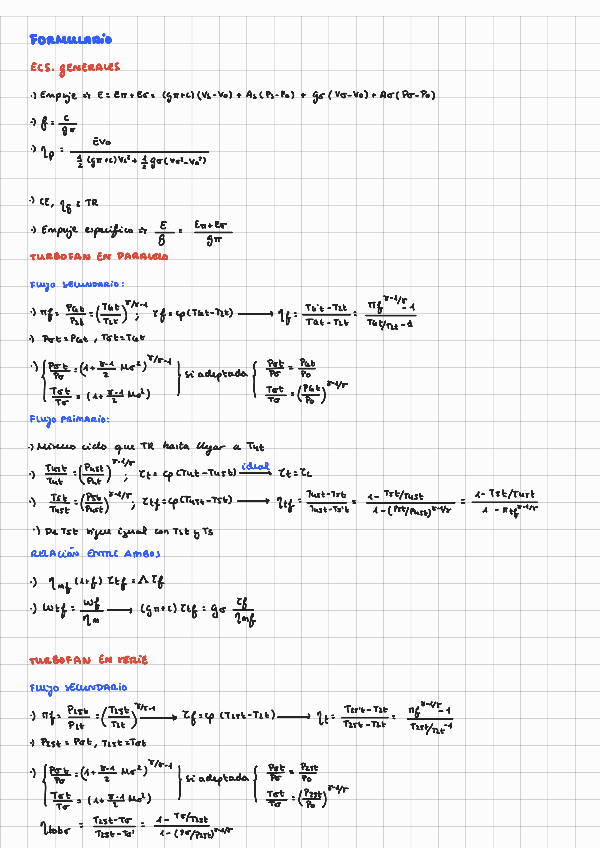 FORMULARIO
ECS. GENERALES
·) Empuje ⇒ E = Eπ + Eσ = (gπ+c)(Vs-V0) + As(Ps-P0) + gσ(Vσ-V0) + Aσ(Pσ-P0)
·) f = c/gπ
·) ηp = EV0 / (1/2 (gπ+c)Vs² + 1/2 gσ(Vσ²-V0²))
·) CE, ηg = TR
·) Empuje específico ⇒ E/g = (Eπ+Eσ)/gπ
TURBOFAN EN PARALELO
FLUJO SECUNDARIO:
·) πf = P2t/P2t
·) Pσt = P2't, Tσt = T2't
·) { Pσt/Pσ = (1 + γ-1/2 Mσ²)^γ/γ-1
Tσt/Tσ = (1 + γ-1/2 Mσ²) } si adaptada {
FLUJO PRIMARIO:
·) Mismo ciclo que TR hasta llegar a T4t
·) T45t/T4t = (P45t/P4t)^γ-1/γ ; τt = cp(T4t-T45t) ideal → τt = τc
·) T5t/T45t = (P5t/P45t)^γ-1/γ ; τtf = cp(T45t-T5t) → ηtf = (T45t-T5t)/(T45t-T5't) = (1-T5t/T45t)/(1-(P5t/P45t)^γ-1/γ) = (1-T5t/T45t)/(1-πtf^γ-1/γ)
·) De T5t sigue igual con
RELACIÓN ENTRE AMBOS
·) ηmf (1+f) τtf = Λ τf
·) Wtf = Wf/ηm → (gπ+c) τtf = gσ τf/ηmf
TURBOFAN EN SERIE
FLUJO SECUNDARIO
·) πf = P25t/P2t = (T25t/T2t)^γ/γ-1 → τf = cp (T25t-T2t) → ηt = (T25't-T2t)/(T25t-T2t) = (πf^γ-1/γ -1)/(T25t/T2t -1)
·) P25t = Pσt, T25t = Tσt
·) { Pσt/Pσ = (1 + γ-1/2 Mσ²)^γ/γ-1
Tσt/Tσ = (1 + γ-1/2 Mσ²) } si adaptada { Pσt/Pσ = P25t/P0
Tσt/Tσ = (P25t/P0)^γ-1/γ
ηtobσ = (T25t-Tσ)/(T25t-Tσ') = (1-Tσ/T25t)/(1-(Pσ/P25t)^γ-1/γ)